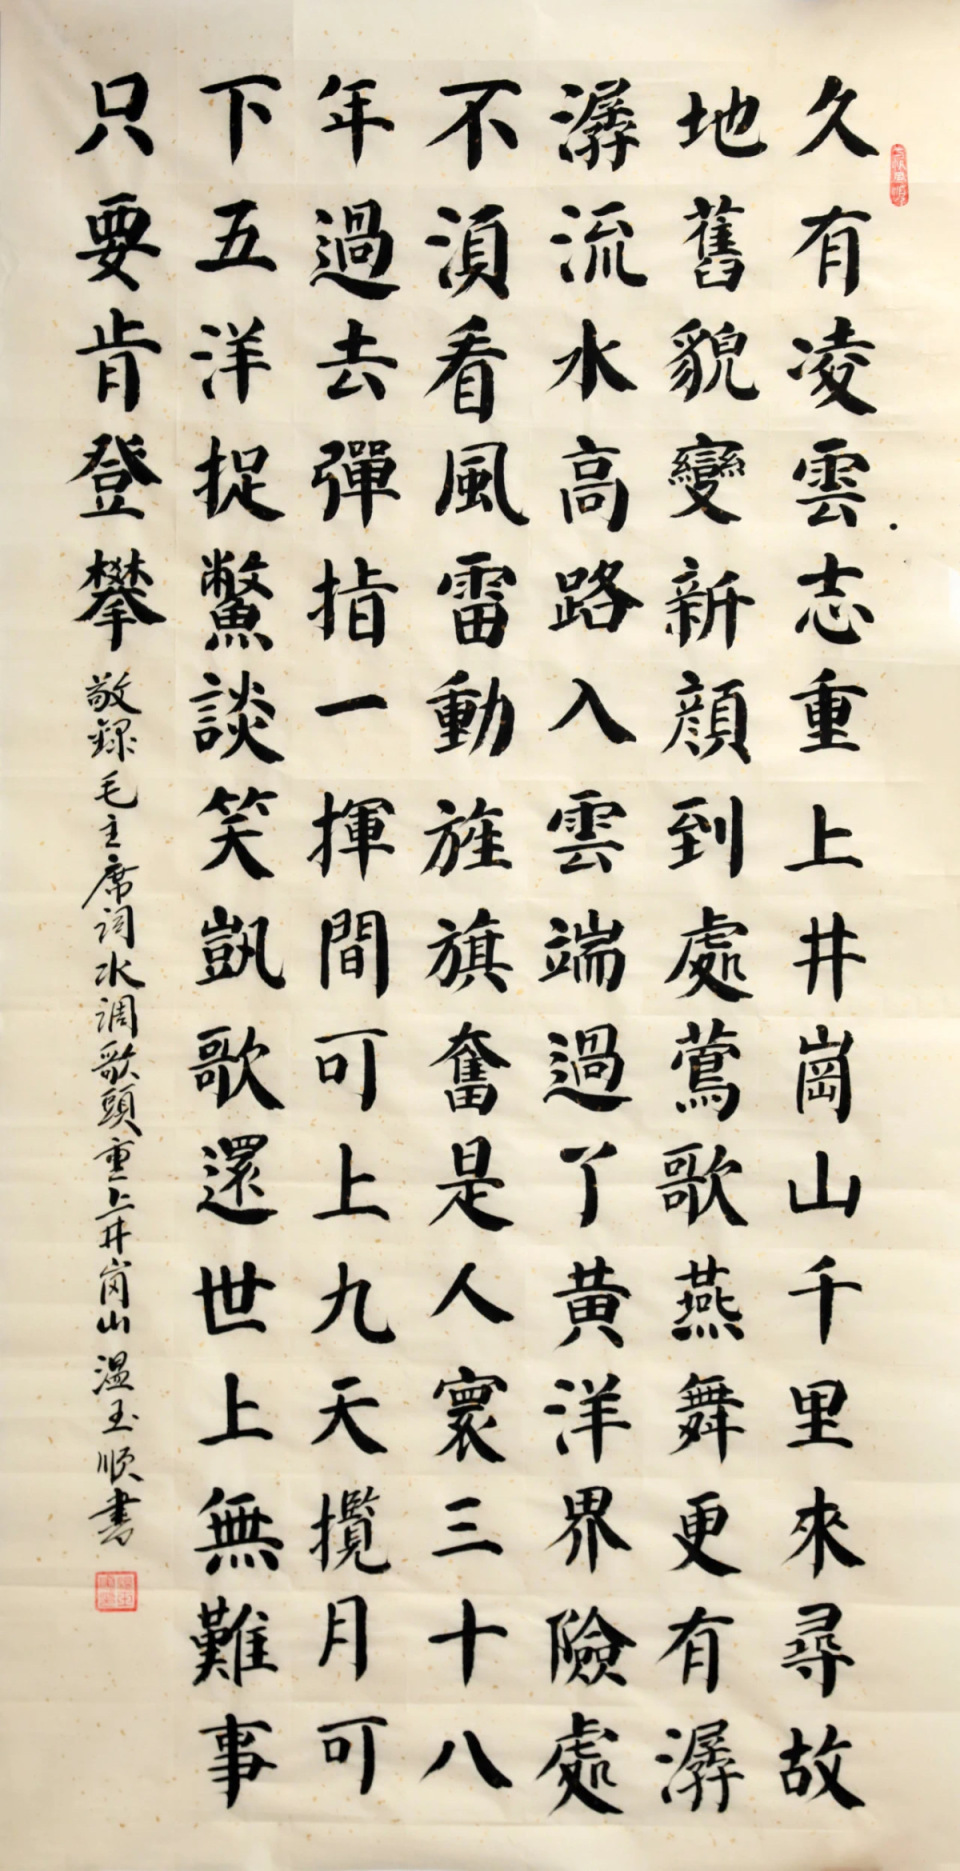 久有凌雲志重上井崗山千里來尋故
地舊貌變新顔到處鶯歌燕舞更有潺
潺流水高路入雲端過了黄洋界險處
不湏看風雷動旌旗奮是人寰三十八
年過去彈指一揮間可上九天攬月可
下五洋捉鱉談笑凱歌還世上無難事
只要肯登攀
敬録毛主席词水调歌頭重上井岗山温玉顺書